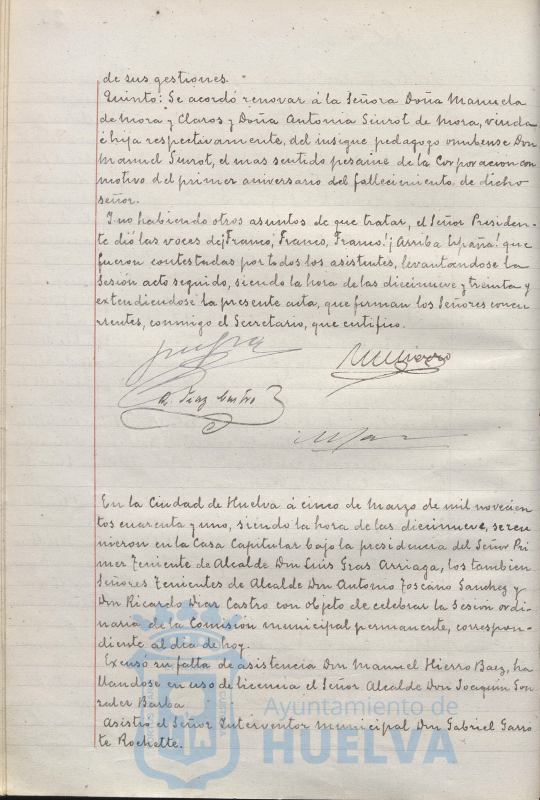 de sus gestiones.
Quinto: Se acordó renovar á la Señora Doña Manuela
de Mora y Claros y Doña Antonia Siurot de Mora, viuda
é hija respectivamente, del insigne pedagogo onubense Don
Manuel Siurot, el mas sentido pesame de la Corporación con
motivo del primer aniversario del fallecimiento de dicho
señor.
Y no habiendo otros asuntos de que tratar, el Señor Presiden-
te dió las voces de ¡Franco, Franco, Franco! ¡Arriba España! que
fueron contestadas por todos los asistentes, levantandose la
Sesión acto seguido, siendo la hora de las diecinueve y treinta y
extendiendose la presente acta, que firman los Señores concu-
rrentes, conmigo el Secretario, que certifico.
R. Diaz Castro
En la Ciudad de Huelva á cinco de Marzo de mil novecien
tos cuarenta y uno, siendo la hora de las diecinueve, se reu
nieron en la Casa Capitular bajo la presidencia del Señor Pri
mer Teniente de Alcalde Don Luis Gras Arriaga, los tambien
Señores Tenientes de Alcalde Don Antonio Toscano Sanchez y
Don Ricardo Diaz Castro con objeto de celebrar la Sesión ordi
naria de la Comisión municipal permanente, correspon-
diente al dia de hoy.
Excusó su falta de asistencia Don Manuel Hierro Baez, ha
llandose en uso de licencia el Señor Alcalde Don Joaquin Gon
zalez Barba
Asistió el Señor Interventor municipal Don Gabriel Garro
te Rochette.
Ayuntamiento de
HUELVA